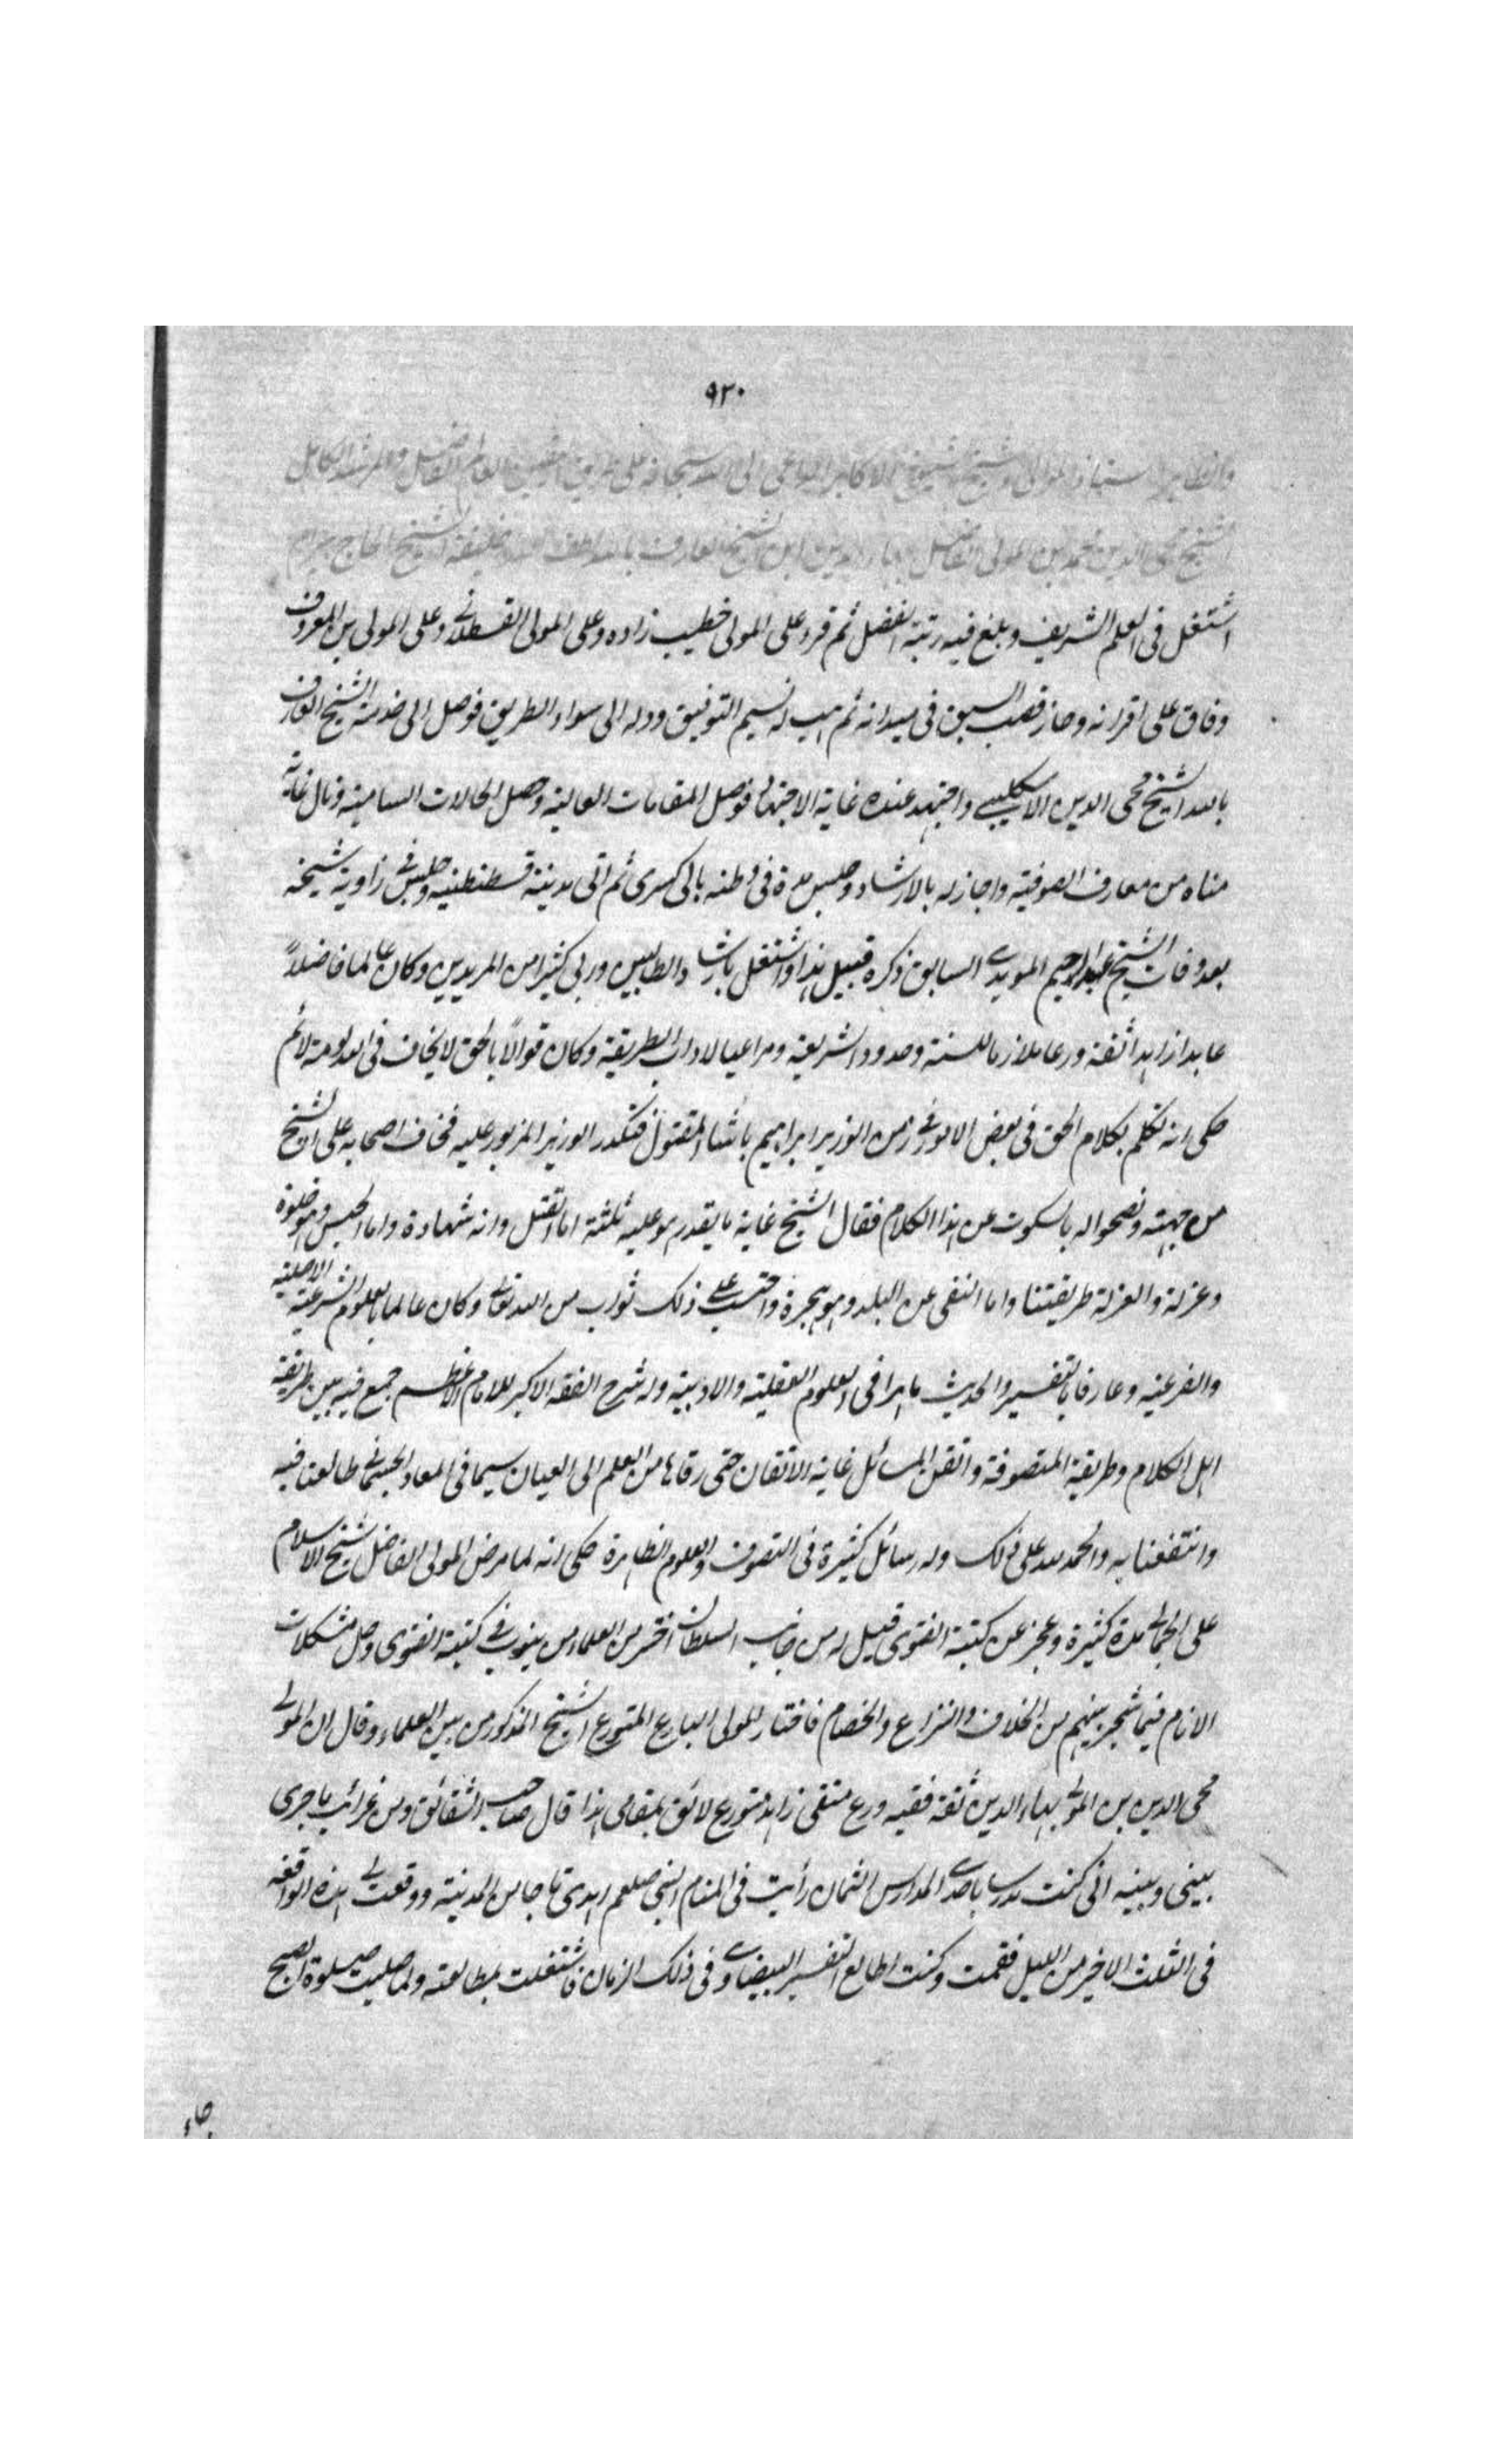 ٩٢٠
الاكابر الداعي الى الله سبحانه على
الشيخ محيى الدين محمد بن المولى الفاضل بهاء الدين ابن الشيخ العارف بالله لطف الله خليفة الشيخ الحاج بيرام
اشتغل فى العلم الشريف وبلغ فيه رتبة الفضل ثم قرء على المولى خطيب زاده وعلى المولى القسطلانى وعلى المولى بن المعروف
وفاق على اقرانه وحاز قصب السبق فى ميدانه ثم هب له نسيم التوفيق ودله الى سواء الطريق فوصل الى خدمة الشيخ العارف
بالله الشيخ محيى الدين الاسكليبى واجتهد عنده غاية الاجتهاد فوصل المقامات العالية وحصل الحالات السامية ونال غاية
مناه من معارف الصوفية واجاز له بالارشاد وجلس مدة فى وطنه بالى كسرى ثم اتى مدينة قسطنطنيه وجلس فى زاوية شيخه
بعد وفات الشيخ عبد الرحيم المويدى السابق ذكره قبيل هذا واشتغل بارشاد الطالبين وربى كثيرا من المريدين وكان عالما فاضلاً
عابدا زاهدا ثقة ورعا ملازما للسنة وحدود الشريعة ومراعيا لاداب الطريقة وكان قوالاً بالحق لا يخاف فى الله لومة لائم
حكى انه تكلم بكلام الحق فى بعض الامور فى زمن الوزير ابراهيم باشا المقتول فتكدر الوزير المزبور عليه فخاف اصحابه على الشيخ
من جهته ونصحوا له بالسكوت عن هذا الكلام فقال الشيخ غاية ما يقدم هو عليه ثلثة اما القتل وانه شهادة واما الحبس وهو خلوة
وعزلة والعزلة طريقتنا واما النفى عن البلد وهو هجرة واحتسب على ذلك ثواب من الله تعالى وكان عالما بالعلوم الشرعية الاصلية
والفرعية وعارفا بالتفسير والحديث ماهرا فى العلوم العقلية والادبية وله شرح الفقه الاكبر للامام الاعظم جمع فيه بين طريقة
اهل الكلام وطريقة المتصوفة واتقن المسائل غاية الاتقان حتى رقاها من العلم الى العيان سيما فى المعاد الجسمانى طالعنا فيه
وانتفعنا به والحمد لله على ذلك وله رسائل كثيرة فى التصوف والعلوم الظاهرة حكى انه لما مرض المولى الفاضل شيخ الاسلام
على الجمالى مدة كثيرة وعجز عن كتبة الفتوى قيل له من جانب السلطان اختر من العلماء من ينوب فى كتبة الفتوى وحل مشكلات
الانام فيما شجر بينهم من الخلاف والنزاع والخصام فاختار المولى البارع المتورع الشيخ المذكور من بين العلماء وقال ان المولى
محيى الدين بن المولى بهاء الدين ثقة فقيه ورع متقى زاهد متورع لائق بمقامى هذا قال صاحب الشقائق ومن غرائب ما جرى
بينى وبينه انى كنت مدرسا باحدى المدارس الثمان رأيت فى المنام النبى صلعم اهدى تاجا من المدينة ووقعت لى هذه الواقعة
فى الثلث الاخير من الليل فقمت وكنت اطالع التفسير البيضاوى فى ذلك الزمان فاشتغلت بمطالعته ولما صليت صلوة الصبح
جاء